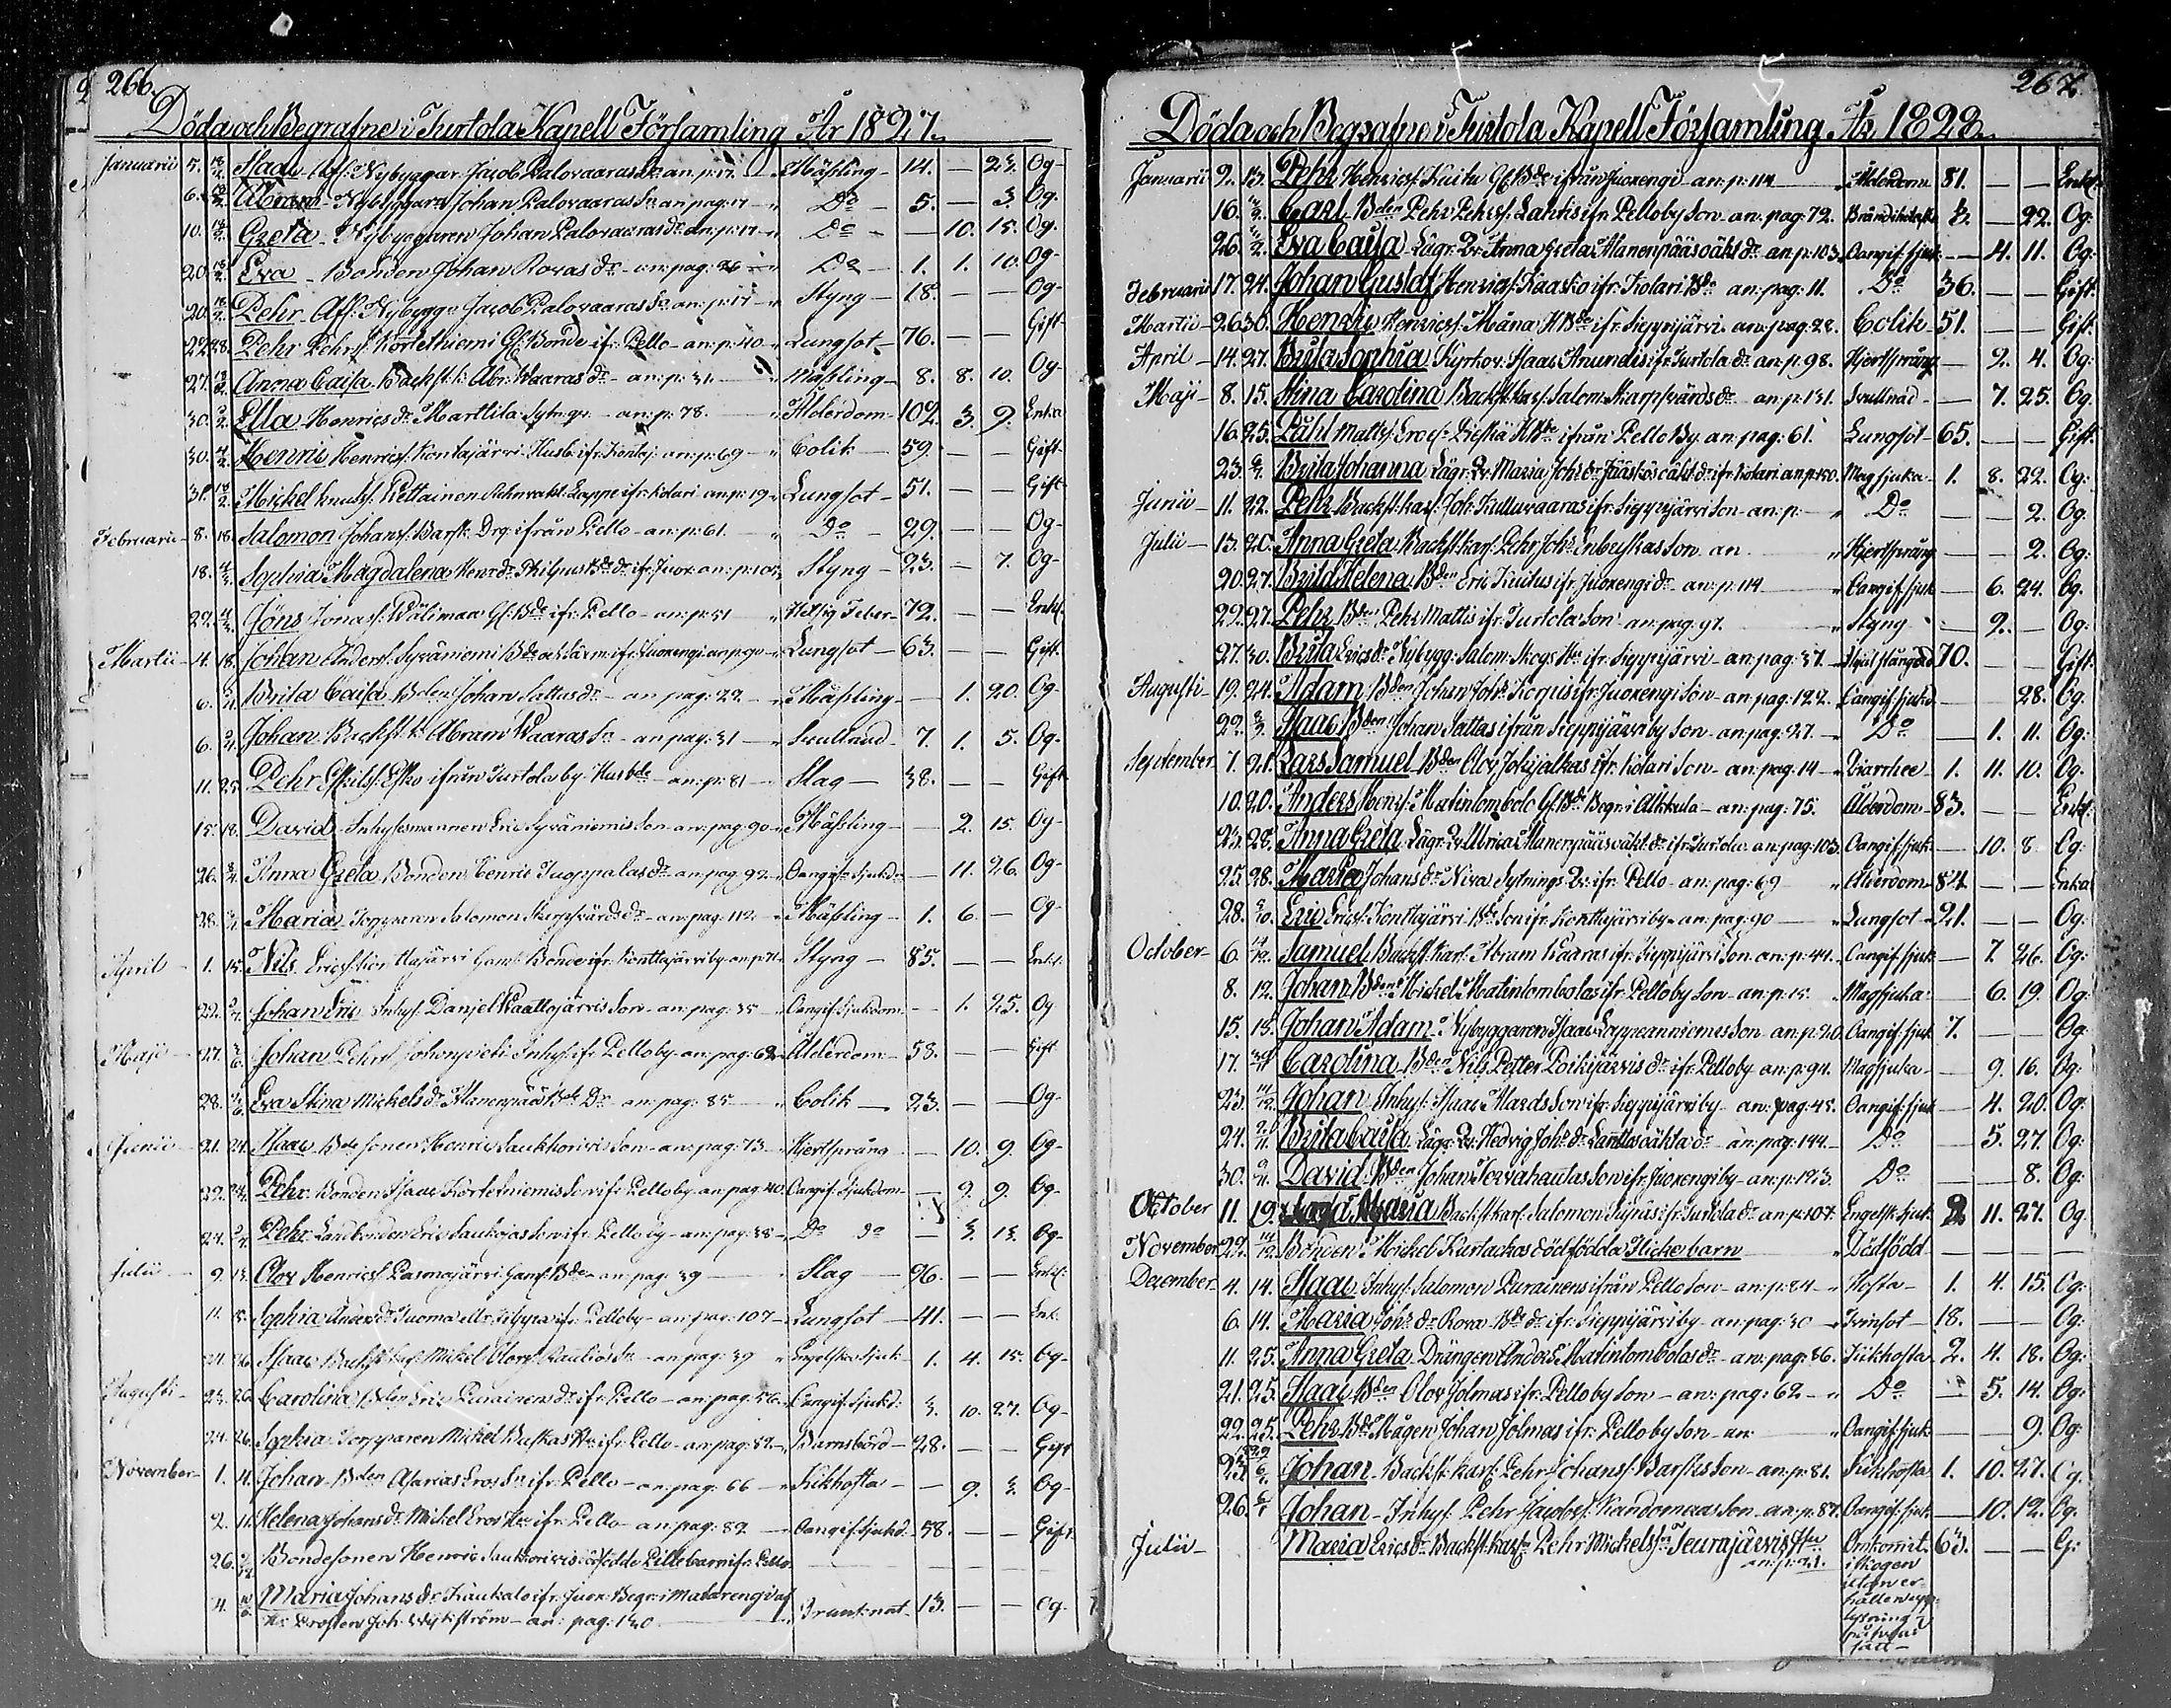 266.
Döda och Begrafne i Turtola Kapell Församling År 1827.
Januarii 5. 18/2. Isaac Afl: Nybyggar Jacob Palovaaras Sn an: p: 17. Mäßling 14. — 23. Og
6. 18/2. Abram Nybyggarn Johan Palovaaras Sn an: pag: 17 Do 5. — 3. Og.
10. 18/2. Greta Nybyggaren Johan Palovaaras dr an: p: 17 Do — 10. 15. Og.
20. 18/2. Eva Bonden Johan Rovas dr an: pag: 26 Do 1. 1. 10. Og
20. 18/2. Pehr Afl: Nybygg Jacob Palovaaras Sn an: p: 17 Styng 18. — — Og
22. 28. Pehr Pehrs: Körteniemi Gl: Bonde ifr: Pello an: p: 40 Lungsot 76. — — Gift
27. 18/2. Anna Caisa Backst: k: Abr: Waaras dr an: p: 31. Mäßling 8. 8. 10. Og
30. Ella Henrics dr Marttila Sytn: gr an: p: 78. Ålderdom 102. 3. 9. Enka
30. 4/2. Henric Henrics: Kontajärvi Husb: ifr: Kontaj: an: p: 69 Colik 59. — — Gift
31. 18/2. Mickel Knuts: Kettainen Lappe ifr: Kolari an: p: 19 Lungsot 51. — — Gift
Februarii 8. 18. Salomon Johans: Barsk Drg: ifrån Pello an: p: 61. Do 29. — — Og
18. Sophia Magdalena Henr: dr Philpus Bds dr ifr: Juox: an: p: 105 Styng 23. — 7. Og
22. Jöns Jonas: Wälimaa Gl: Bde ifr: Pello an: p: 51 Hettig Feber 72. — — Enkl:
Martii 4. 18. Johan Anders: Syväniemi Bde ifr: Juoxengi an: p: 90 Lungsot 63. — — Gift
6. Brita Caisa Bden Johan Sattas dr an: pag: 22 Mäßling — 1. 20. Og
6. Johan Backst: k: Abram Waaras Sn an: pag: 31 Svullnad 7. 1. 5. Og
11. 25. Pehr Eskils: Esko ifrån Turtola by Husbde an: p: 81 Slag 38. — — Gift
15. 18. David Inhysesmannen Eric Syväniemis Son an: pag: 90 Mäßling — 2. 15. Og
26. Anna Greta Bonden Henric Tuoppalas dr an: pag: 92 Oangifn Sjukd: — 11. 26. Og
28. Maria Torpparen Salomon Skarpsvärds dr an: pag: 112 Mäßling 1. 6. — Og
April 1. 15. Nils Erics: Konttajärvi Gaml: Bonde ifr: Konttajärvi by an: p: 71 Styng 85. — — Enkl:
22. Johan Eric Inhys: Daniel Waattojärvis Son an: pag: 35 Oangif: Sjukdom — 1. 25. Og
Maji 27. Johan Pehrs: Johonpieti Inhys: ifr: Pelloby an: pag: 62 Ålderdom 58. — — Gift
28. Eva Stina Mickels dr Alanenpää Bds Dr an: pag: 85 Colik 23. — — Og
Junii 21. 24. Isaac Bdesonen Henric Saukkorivis Son an: pag: 73 Hjertsprång — 10. 9. Og
22. 24. Pehr Bonden Isaac Körteniemis Son ifr: Pelloby an: pag: 40 Oangif: Sjukdom — 9. 9. Og
24. Pehr Landbonden Eric Saukojas Son ifr: Pello by an: pag: 38 Do do — 3. 13. Og
Julii 9. 15. Olov Henrics: Pasmajärvi Gaml: Bde an: pag: 39 Slag 96. — — Enkl:
11. 15. Sophia Anders dr Tuomaella ifr: Pelloby an: pag: 107 Lungsot 41. — — Enk:
21. 26. Isaac Backst: karl: Mickel Olovs: Raulios Sn an: pag: 39 Engelska Sjuk: 1. 4. 15. Og
Augusti 23. 26. Carolina Bden Eric Purainens dr ifr: Pello an: pag: 56 Oangif: Sjukd: 3. 10. 27. Og
24. 26. Sophia Torpparen Mickel Buskas Hu ifr: Pello an: pag: 52 Barnsbörd 28. — — Gift
November 1. 11. Johan Bden Asarias Eros Sn ifr: Pello an: pag: 66 Kikhosta — 9. 3. Og
2. 11. Helena Johans dr Mickel Eros Hu ifr: Pello an: pag: 82 Oangif: Sjukd: 58. — — Gift
26. Bondesonen Henric Saukkorivis dödfödde Pillebarn ifr: Pello
4. Maria Johans dr Kaukalo ifr: Juox: Begr: i Matarengi af
Hr Prosten Joh: Wikström an: pag: 130 Brunknat 13. — — Og
267.
Döda och Begrafne i Turtola Kapell Församling År 1828.
Januarii 9. 13. Pehr Henrics: Kuitu Gl: Bde ifrån Juoxengi an: p: 114 Ålderdom 81. — — Enkl:
16. Carl Bden Pehr Pehrs: Lahtis ifr: Pelloby Son an: pag: 72. — 22. Og:
26. Eva Caisa Lägr: Qv: Anna Greta Alanenpääs oäkt dr an: p: 103 Oangif: sjuk: — 4. 11. Og:
Februarii 17. 24. Johan Gustaf Henrics: Kaasko ifr: Kolari Bde an: pag: 11. Do 36. — — Gift:
Martii 26. 30. Henric Henrics: Måna KBde ifr: Sieppijärvi an: pag: 28. Colik 51. — — Gift:
April 14. 27. Brita Sophia Kyrkov: Isaac Anundis ifr: Turtola dr an: p: 98. Hjertsprång — 2. 4. Og:
Maji 8. 15. Stina Carolina Backst: karl: Salom: Skarpsvärds dr an: p: 131. Svullnad — 7. 25. Og
16. 25. Påhl Matts: Eroes: Lieskä KBde ifrån Pello By an: pag: 61. Lungsot 65. — — Gift:
23. Brita Johanna Lägr: Qv: Maria Johs dr Jääskös oäkt dr ifr: Kolari an: p: 150. Magsjuka 1. 8. 22. Og:
Junii 11. 22. Pehr Backst: karl: Joh: Kulluvaaras ifr: Sieppijärvi Son an: p: Do — — 2. Og
Julii 13. 20. Anna Greta Backst: karl: Pehr Johs Enbuskas Son an Hjertsprång — — 2. Og:
20. 27. Brita Helena Bden Eric Kuitus ifr: Juoxengi dr an: p: 114 Oangif: sjuk — 6. 24. Og:
22. 27. Pehr Bden Pehr Mattis ifr: Turtola Son an: pag: 97. Styng — 2. — Og:
27. 30. Brita Erics dr Nybygg: Salom: Skogs Hu ifr: Sieppijärvi an: pag: 37. 70. — — Gift:
Augusti 19. 24. Adam Bden Johan Johs: Korpis ifr: Juoxengi Son an: pag: 122. Oangif: sjukd — — 28. Og:
22. Isaac Bden Johan Sattas ifrån Sieppijärvi by Son an: pag: 27. Do — 1. 11. Og:
September 7. 21. Lars Samuel Bden Olov Jokijalkas ifr: Kolari Son an: pag: 14 Diarrhee 1. 11. 10. Og.
10. 20. Anders Henrs: Matintombolo Gl: Bde Begr: i Alkkula an: pag: 75. Ålderdom 83. — — Enkl:
23. 28. Anna Greta Lägr: Qv: Ulrica Alanenpääs oäkt dr ifr: Turtola an: pag: 103. Oangif: sjuk — 10. 8. Og:
25. 28. Marta Johans dr Niva Sytnings Qv: ifr: Pello an: pag: 69 Ålderdom 84 — — Enka
28. Eric Erics: Konttajärvi Bds Son ifr: Konttajärvi by an: pag: 90 Lungsot 21. — — Og:
October 6. Samuel Backst: karl: Abram Waaras ifr: Sieppijärvi Son an: p: 44. Oangif: sjuk — 7. 26. Og:
8. 12. Johan Bden Mickel Matintombolas ifr: Pelloby Son an: p: 15. Magsjuka — 6. 19. Og:
15. 15. Johan Adam Nybyggaren Isaac Lappeanniemes Son an: p: 20. Oangif: sjuk 7. — — Og:
17. Carolina Bden Nils Petter Poikijärvis dr ifr: Pelloby an: p: 94. Magsjuka — 9. 16. Og:
23. Johan Inhys: Isaac Mards Son ifr: Sieppijärvi by an: pag: 45. Oangif: sjuk — 4. 20. Og:
24. Brita Caisa Lägr: Qv: Hedvig Johs dr Lanttos oäkta dr an: pag: 144 Do — 5. 27. Og:
30. David Bden Johan Torvahautas Son ifr: Juoxengi by an: p: 123. Do — — 8. Og:
October 11. 19. Maria Backst: karl: Salomon ifr: Turtola dr an: p: 107. Engelsk: sjuk: 2 11. 27. Og
November 27. Bonden Mickel Kurtackos dödfödda Flickebarn Dödfödd — — —
December 4. 14. Isaac Inhys: Salomon Purainens ifrån Pello Son an: p: 84 Hosta 1. 4. 15. Og:
6. 14. Maria Johs dr Rova Bds dr ifr: Sieppijärvi by an: pag: 30 Tvinsot 18. — — Og:
11. 25. Anna Greta Drängen Anders Matintombolas dr an: pag: 86. Kikhosta 2. 4. 18. Og:
21. 25. Isaac Bden Olov Jolmas ifr: Pelloby Son an: pag: 62 Do — 5. 14. Og:
22. 25. Pehr Bds Mågen Johan Jolmas ifr: Pelloby Son an: Oangif: sjuk — — 9. Og:
23. Johan Backst: karl: Pehr Johans: Barskes Son an: p: 81. Kikhosta 1. 10. 27. Og.
26. Johan Inhys: Pehr Jacobs: Kandomaas Son an: p: 87. Oangif: sjuk — 10. 12. Og.
Julii Maria Erics dr Backst: karlen Pehr Mickelssn Teurajärvis Hu Omkommit 63. — — G:
an: p: 21. i skogen
utan er-
hållen upp-
lysning
på hvad
sätt